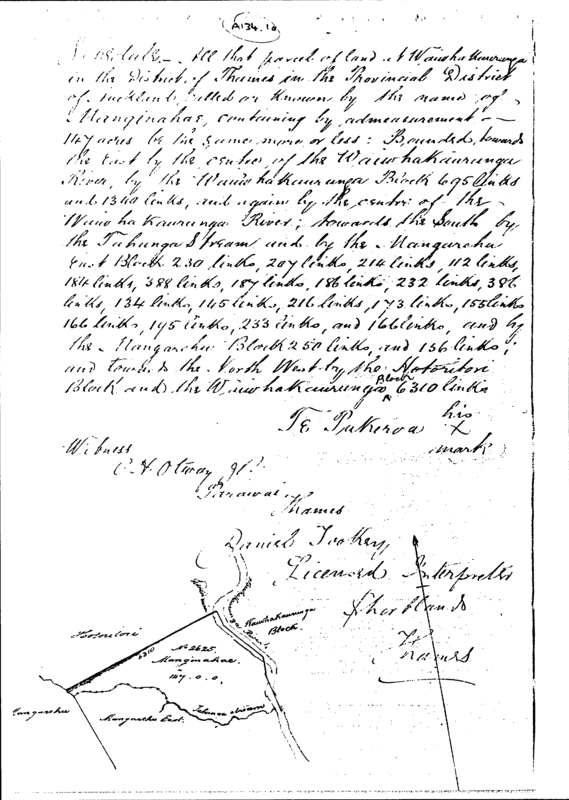 A134.10
Schedule, - All that parcel of land at Waiwhakaurunga
in the District of Thames in the Provincial District
of Auckland called or known by the name of
Manginahae, containing by admeasurement -
147 acres be the same more or less: Bounded, towards
the East by the centre of the Waiwhakaurunga
River, by the Waiwhakaurunga Block 695 links
and 1340 links, and again by the centre of the
Waiwhakaurunga River; towards the South by
the Tahunga Stream and by the Mangarehu
East Block 230 links, 207 links, 214 links, 112 links,
184 links, 388 links, 187 links, 186 links, 232 links, 386
links, 134 links, 145 links, 216 links, 173 links, 155 links
166 links, 195 links, 233 links, and 166 links, and by
the Mangarehu Block 250 links, and 136 links;
and towards the North West by the Hotoritori
Block and the Waiwhakaurunga Block 6310 links
Te Pukeroa his
x
mark
Witness
C. H. Otway JP.
Parawai
Thames
Daniel Tookey,
Licensed Interpreter
Shortland
Thames
Hotoritori
6310
No 2625.
Manginahae.
147. 0. 0.
Waiwhakaurunga
Block.
River
Mangarehu
Mangarehu East.
Tahunga stream